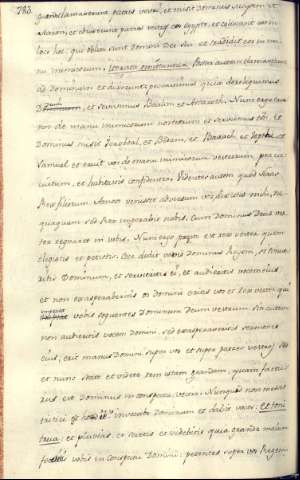 783.
quando clamaverunt patres vestri, et misit Dominus Moysen et
Aaron: et eduxerunt patres vestros ex Egypto, et collocavit eos in
loco hoc. qui obliti sunt Domini Dei sui et tradidit eos in ma
nu inimicorum, Postea autem clamaverunt
ad Dominum et dixerunt: peccavimus quia dereliquimus
Dominum, et servivimus Baalim et Astaroth. Nunc ergo erue
nos de manu inimicorum nostrorum et serviemus tibi. et
Dominus misit Jerobaal, et Badan, et Barach, et Jephte, et
Samuel et eruit vos de manu inimicorum vestrorum, per cir
cuitum, et habitastis confidenter. Videntes autem quod Naas,
Rex filiorum Amon venisset adversum vos, dixistis mihi, ne
quaquam sed Rex imperabit nobis. Cum Dominus Deus ves
ter regnaret in vobis. Nunc ergo Rex vester, quem
elegistis et petistis. Ecce dedit vobis Dominus Regem, si timue
ritis Dominum, et servieritis ei, et audieritis vocem eius
et non exasperaberitis os Domini eritis vos et Rex vester qui
imperat vobis sequentes Dominum Deum vestrum. Si autem
non audieritis vocem Domini, sed exasperaveritis sermones
eius, erit manus Domini super vos et super patres vestros. Sed
et nunc state et videte rem istam grandem, quam factu
rus est Dominus in conspectu vestro. Nunquid non messis
tritici est hodie? invocabo Dominum et dabit voces: et toni
trua: et pluvias: et scietis et videbitis quia grande malum
vobis in conspectu Domini: petentes super vos Regem